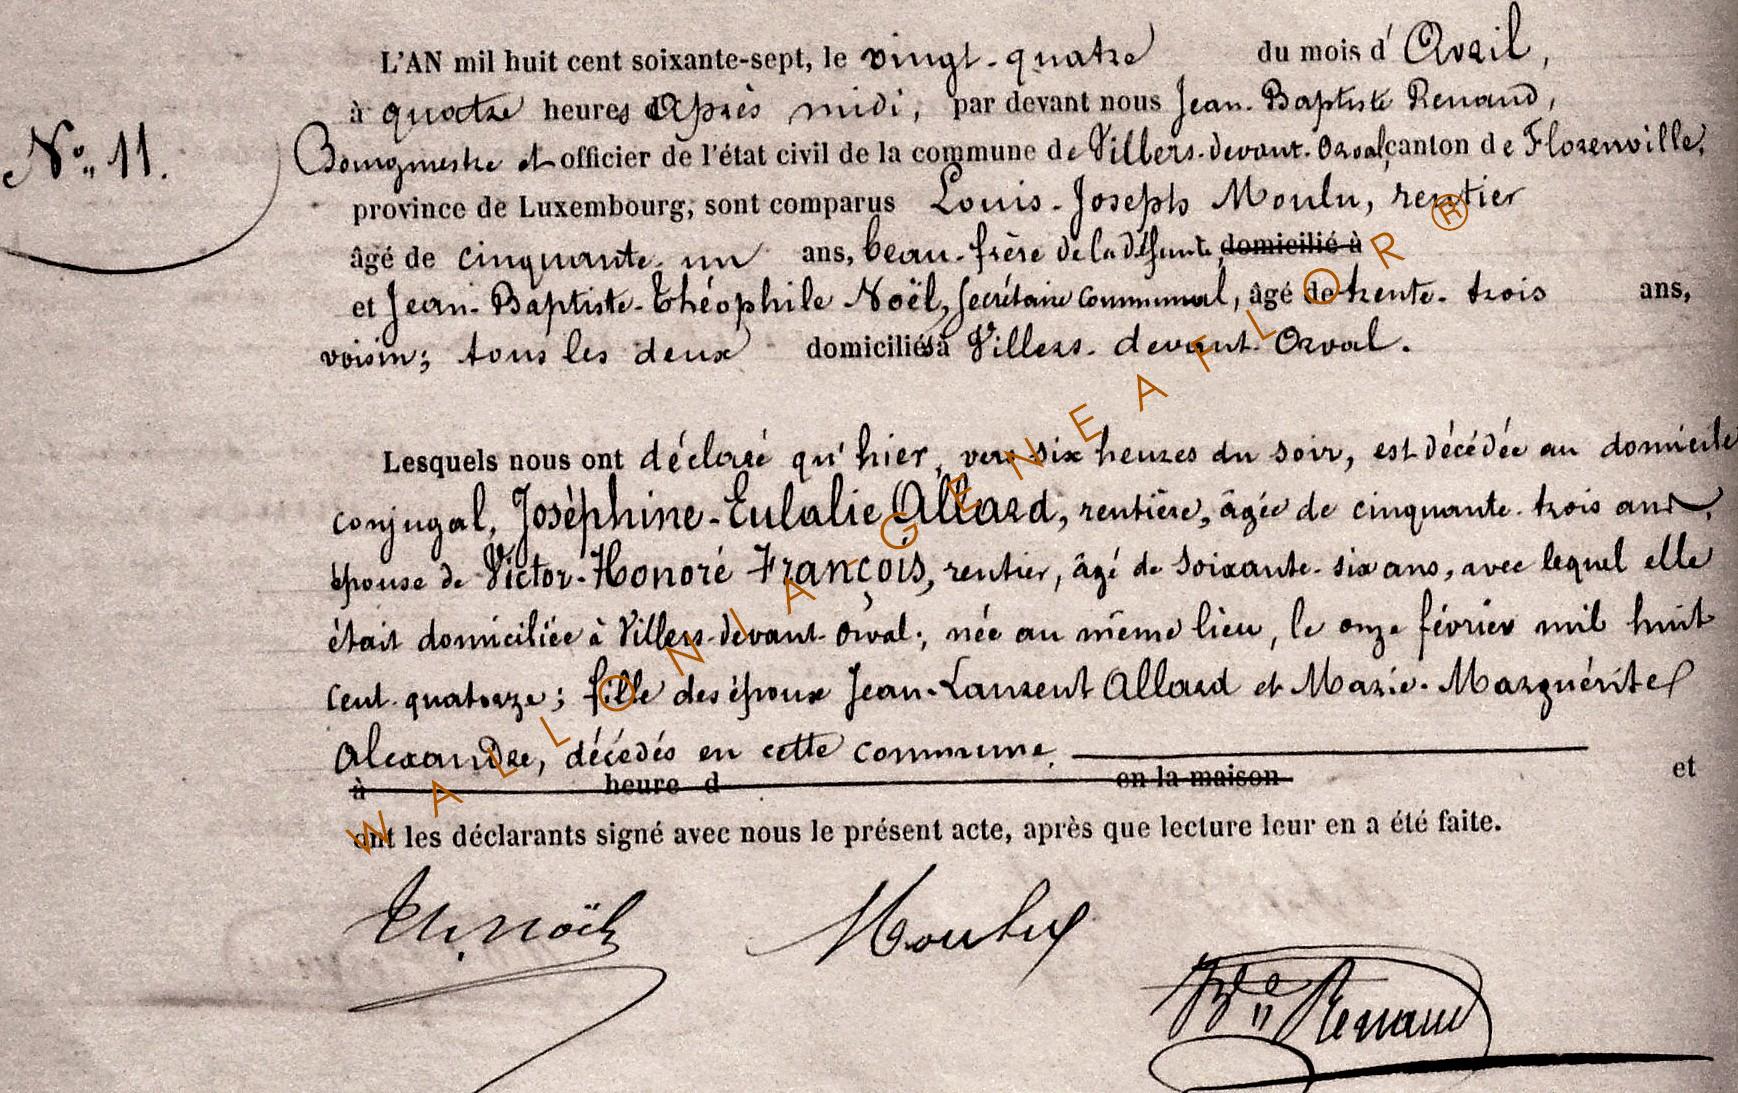 L'AN mil huit cent soixante-sept, le vingt-quatre du mois d'Avril,
à quatre heures après midi, par devant nous Jean-Baptiste Renaud,
N° 11.
Bourgmestre et officier de l'état civil de la commune de Villers-devant-Orval, canton de Florenville,
province de Luxembourg, sont comparus Louis-Joseph Moulu, rentier
âgé de cinquante-un ans, beau-frère de la défunte, domicilié à
et Jean-Baptiste-Théophile Noël, secrétaire communal, âgé de trente-trois ans,
voisin; tous les deux domiciliés à Villers-devant-Orval.
Lesquels nous ont déclaré qu'hier, vers six heures du soir, est décédée au domicile
conjugal, Josèphine-Eulalie Allard, rentière, âgée de cinquante-trois ans,
épouse de Victor-Honoré François, rentier, âgé de soixante-six ans, avec lequel elle
était domiciliée à Villers-devant-Orval; née au même lieu, le onze février mil huit
cent quatorze; fille des époux Jean-Laurent Allard et Marie-Marguérite
Alexandre, décédés en cette commune.
à heure d en la maison et
ont les déclarants signé avec nous le présent acte, après que lecture leur en a été faite.
Th. Noël Moulu
Renaud
WALLONIA-GENEAFLOR®